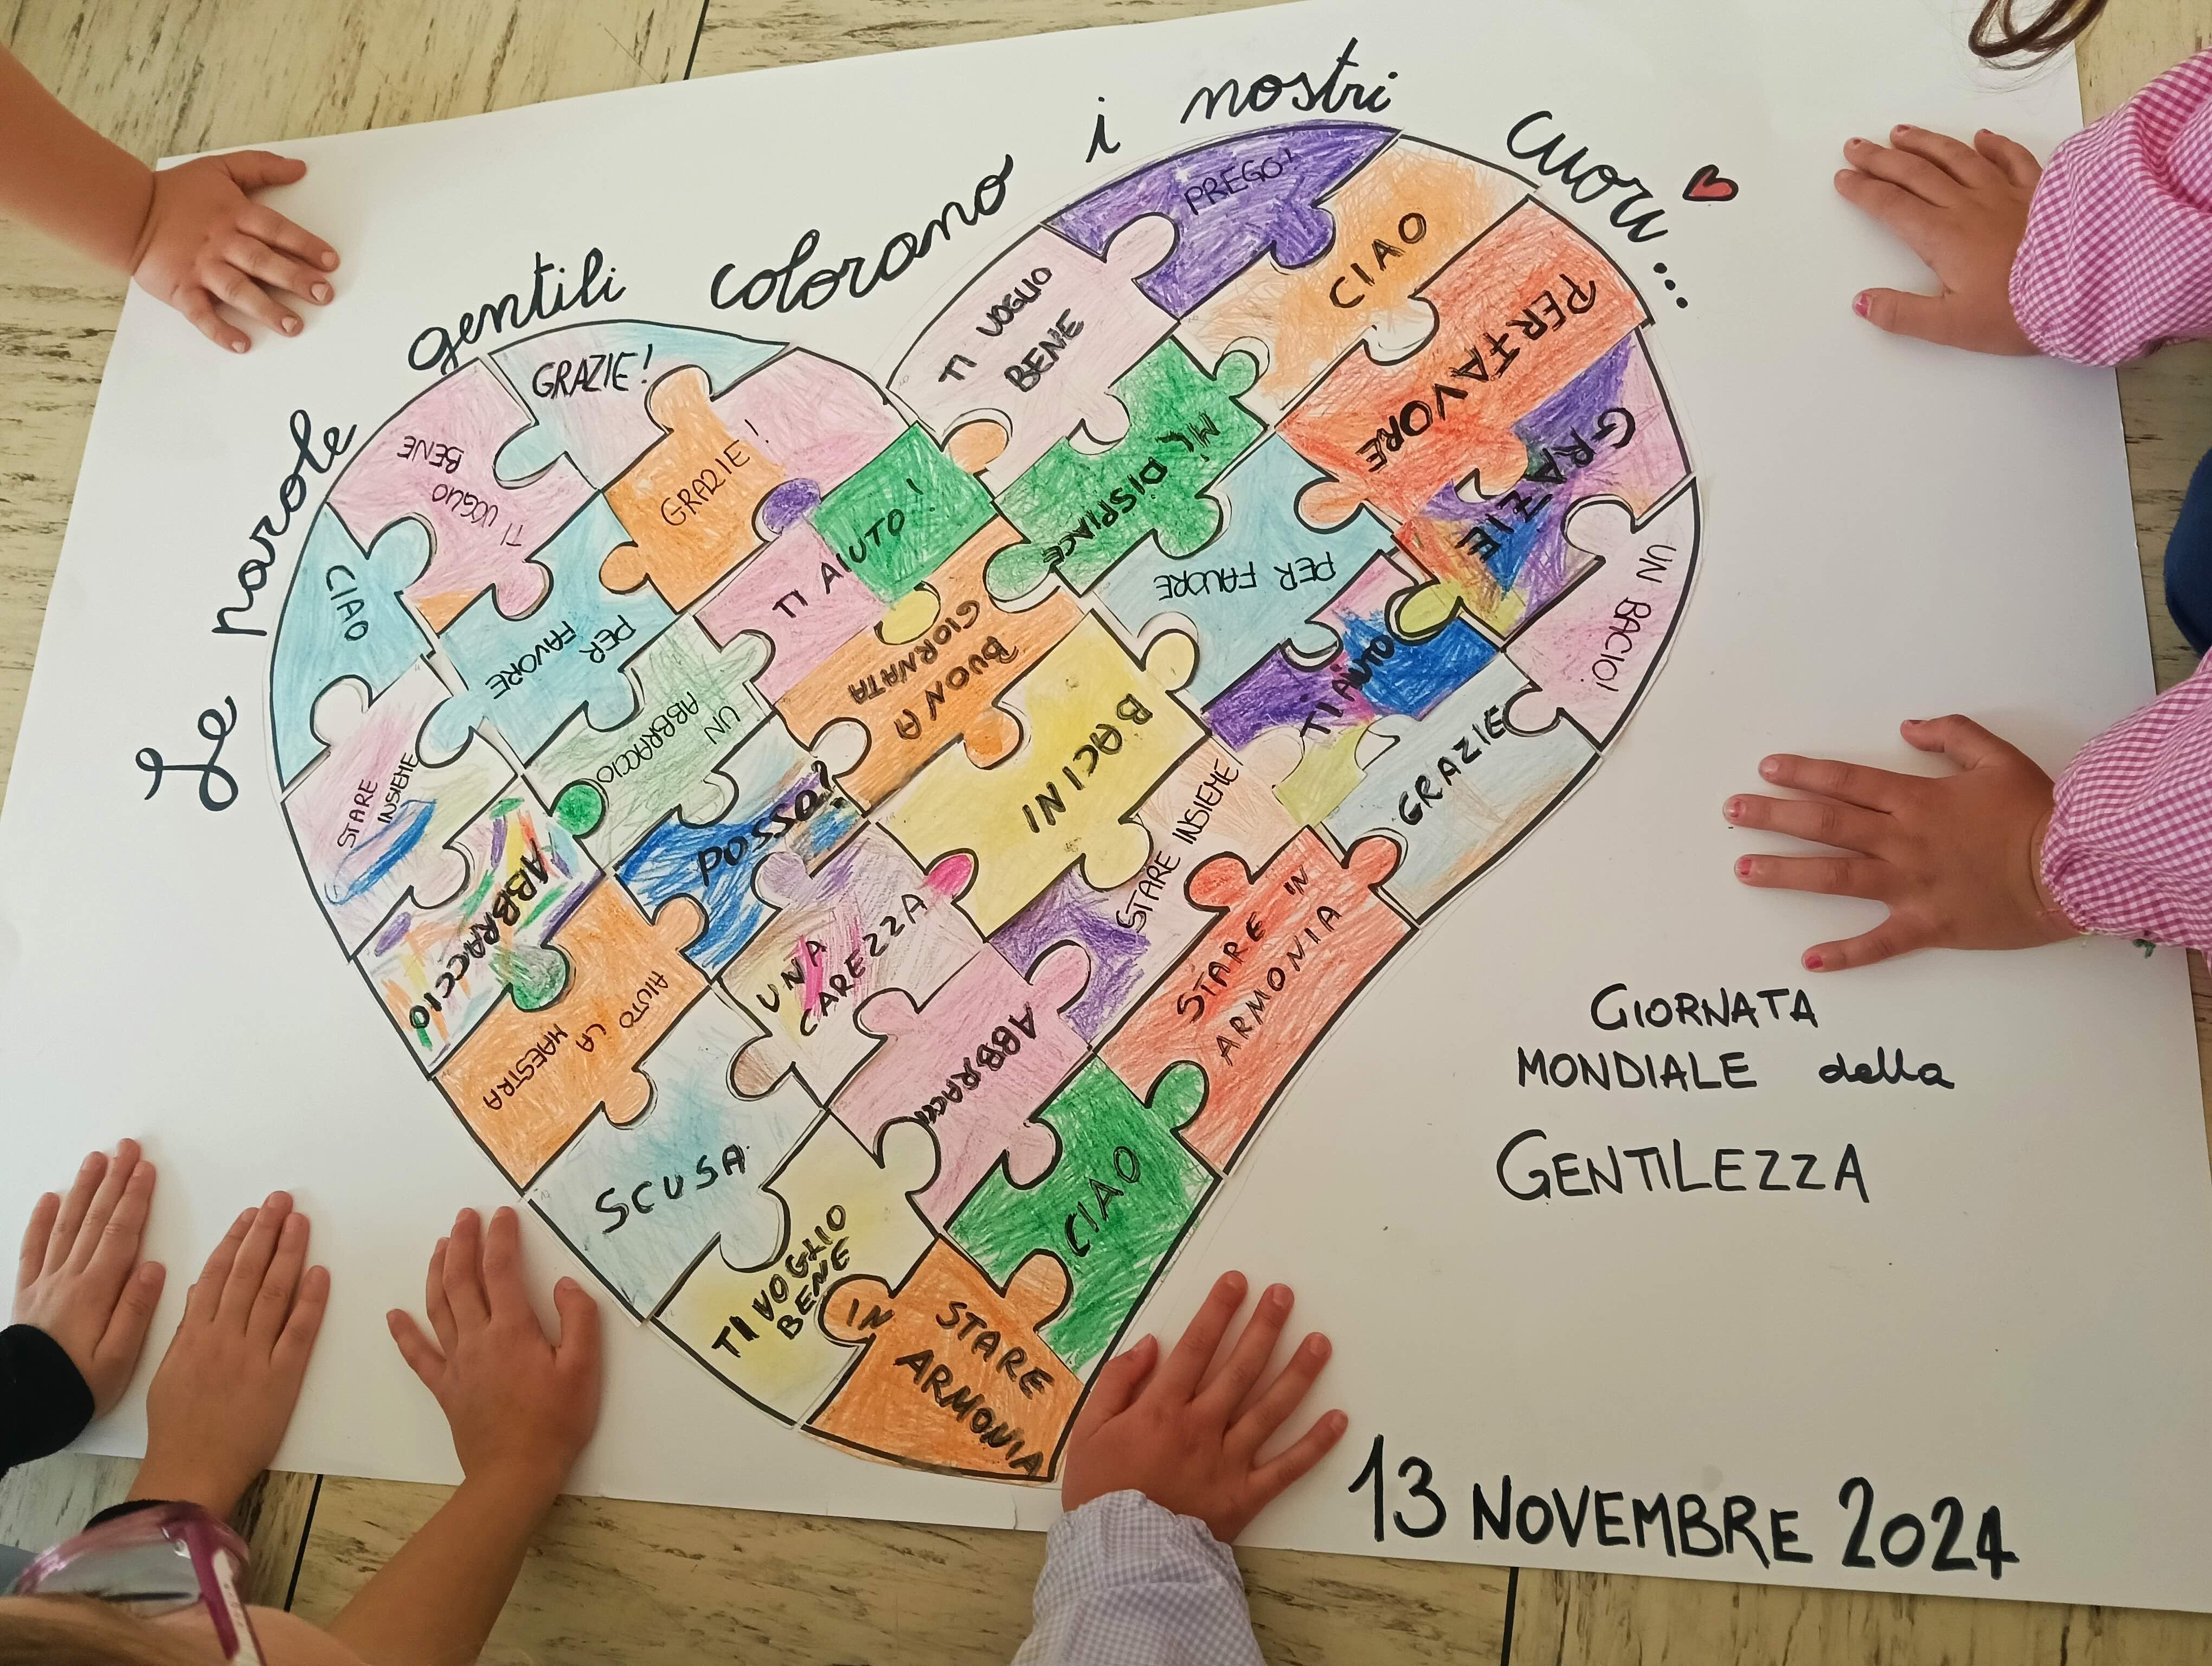 Le parole gentili colorano i nostri cuori...
PREGO!
CIAO
TI VOGLIO
BENE
PER FAVORE
GRAZIE!
TI VOGLIO
BENE
GRAZIE!
MI DISPIACE
GRAZIE
CIAO
PER
FAVORE
TI AIUTO!
PER FAVORE
UN BACIO!
BUONA
GIORNATA
TI AMO
UN
ABBRACCIO
BACINI
GRAZIE
STARE
INSIEME
POSSO?
STARE INSIEME
ABBRACCIO
UNA
CAREZZA
STARE IN
ARMONIA
AIUTO LA
MAESTRA
SCUSA
CIAO
TI VOGLIO
BENE
STARE IN
ARMONIA
GIORNATA
MONDIALE della
GENTILEZZA
13 NOVEMBRE 2024